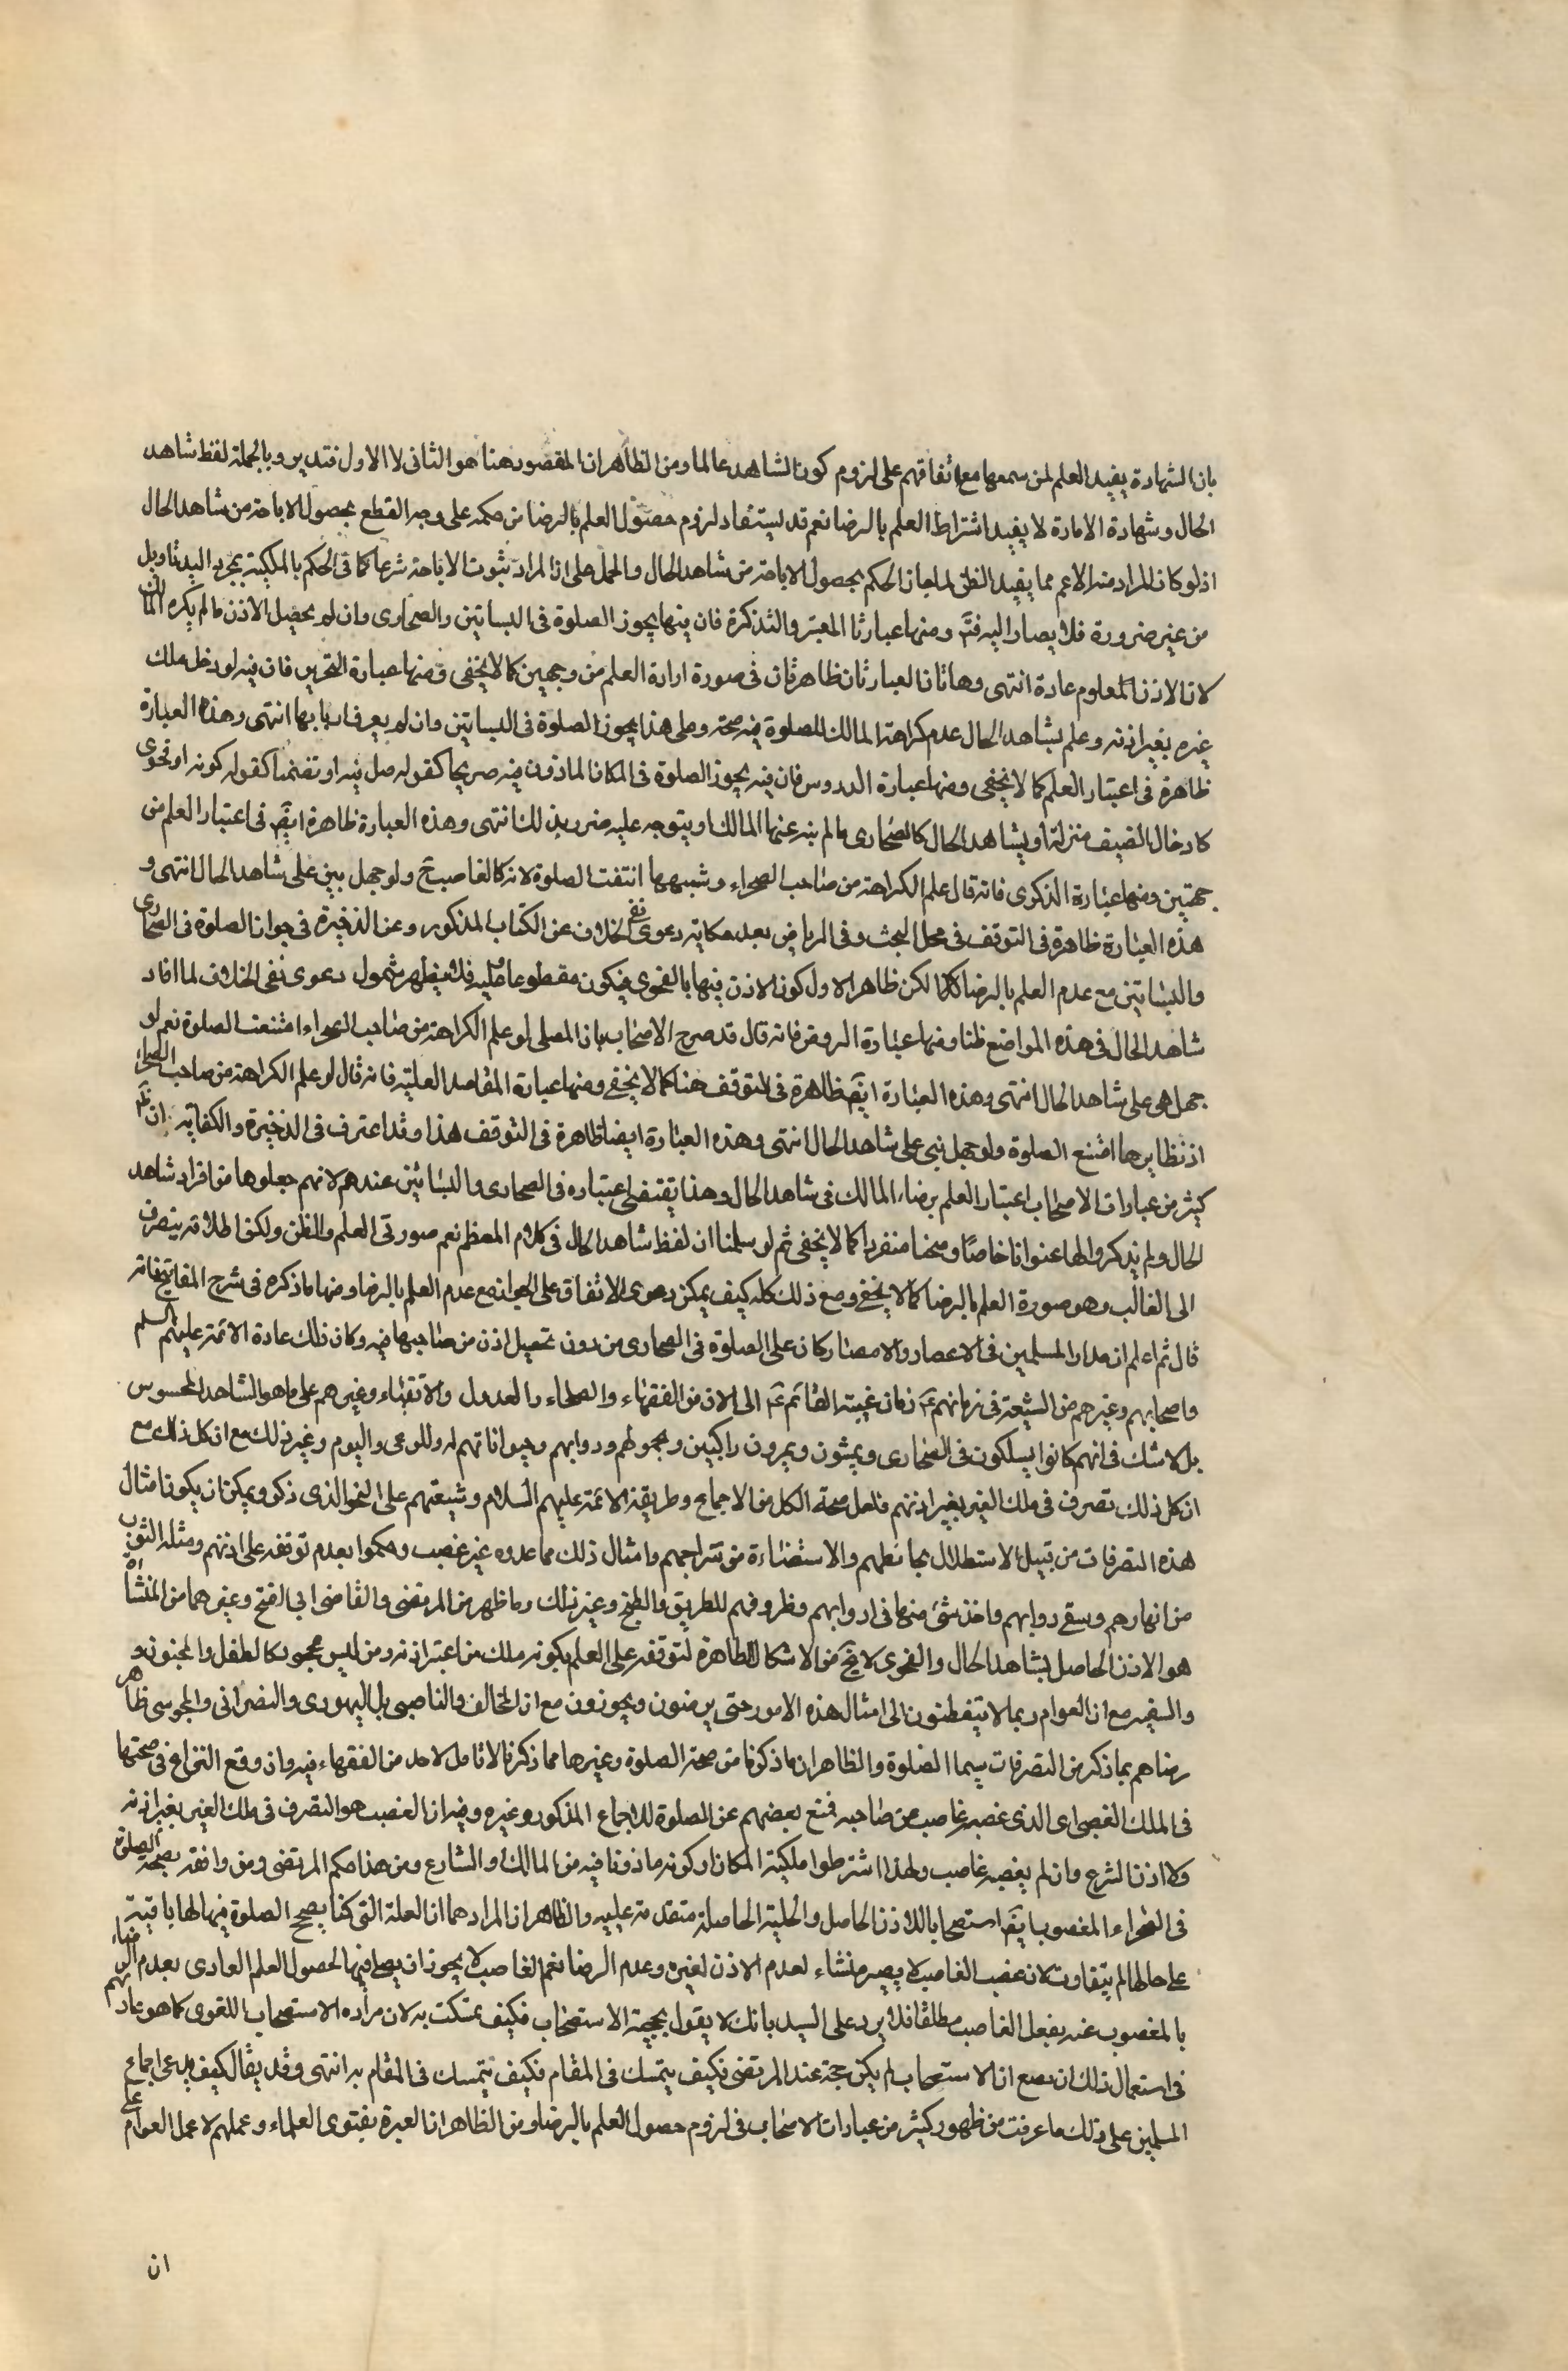 بان الشهادة يفيد العلم لمن سمعها مع اتفاقهم على لزوم كون الشاهد عالما ومن الظاهر ان المقصود هنا هو الثانى لا الاول فتدبر وبالجملة لفظ شاهد
الحال وشهادة الامارة لا يفيد اشتراط العلم بالرضا نعم قد يستفاد لزوم حصول العلم بالرضا من حكمه على وجه القطع بحصول الاباحة من شاهد الحال
اذ لو كان المراد منه الاعم مما يفيد الظن لما جاز الحكم بحصول الاباحة من شاهد الحال والحمل على ان المراد ثبوت الاباحة شرعا كما فى الحكم بالملكية بمجرد اليد تاويل
من غير ضرورة فلا يصار اليه فتم ومنها عبارتا المعتبر والتذكرة فان فيها يجوز الصلوة فى البساتين والصحارى وان لم يحصل الاذن ما لم يكره المالك
لان الاذن المعلوم عادة انتهى وهاتان العبارتان ظاهرتان فى صورة ارادة العلم من وجهين كما لا يخفى ومنها عبارة التحرير فان فيه لو دخل ملك
غيره بغير اذنه وعلم بشاهد الحال عدم كراهة المالك للصلوة فيه صحت وعلى هذا يجوز الصلوة فى البساتين وان لم يعرف اربابها انتهى وهذه العبارة
ظاهرة فى اعتبار العلم كما لا يخفى ومنها عبارة الدروس فان فيه يجوز الصلوة فى المكان الماذون فيه صريحا كقوله صل فيه او تضمنا كقوله كونه او فحوى
كادخال الضيف منزله او بشاهد الحال كالصحارى ما لم ينه عنها المالك او يتوجه عليه ضرر بذلك انتهى وهذه العبارة ظاهرة ايضً فى اعتبار العلم من
جهتين ومنها عبارة الذكرى فانه قال علم الكراهة من صاحب الصحراء وشبهها انتفت الصلوة لانه كالغاصب ح ولو جهل بنى على شاهد الحال انتهى و
هذه العبارة ظاهرة فى التوقف فى محل البحث وفى الرياض بعد حكاية دعوى نفى الخلاف عن الكتاب المذكور وعن الذخيرة فى جواز الصلوة فى الصحارى
والبساتين مع عدم العلم بالرضا لكن ظاهر الاول كون الاذن فيها بالفحوى فيكون مقطوعا عليه فلا يظهر شمول دعوى نفى الخلاف لما افاد
شاهد الحال فى هذه المواضع ظنا ومنها عبارة الروض فانه قال قد صرح الاصحاب بان المصلى لو علم الكراهة من صاحب الصحراء امتنعت الصلوة نعم لو
جهل هى على شاهد الحال انتهى وهذه العبارة ايضً ظاهرة فى التوقف هنا كما لا يخفى ومنها عبارة المقاصد العلية فانه قال لو علم الكراهة من صاحب الصحراء
او نظايرها امتنع الصلوة ولو جهل بنى على شاهد الحال انتهى وهذه العبارة ايضا ظاهرة فى التوقف هذا وقد اعترف فى الذخيرة والكفاية ان ظ
كثير من عبارات الاصحاب اعتبار العلم برضاء المالك فى شاهد الحال وهذا يقتضى اعتباره فى الصحارى والبساتين عندهم لانهم جعلوها من افراد شاهد
الحال ولم يذكروا لها عنوانا خاصا منفردا كما لا يخفى ثم لو سلمنا ان لفظ شاهد الحال فى كلام المعظم نعم صورتى العلم والظن ولكن اطلاقه ينصرف
الى الغالب وهو صورة العلم بالرضا كما لا يخفى ومع ذلك كله كيف يمكن دعوى الاتفاق على الجواز مع عدم العلم بالرضا ومنها ما ذكره فى شرح المفاتيح فانه
قال ثم اعلم ان مدار المسلمين فى الاعصار والامصار كان على الصلوة فى الصحارى من دون تحصيل اذن من صاحبها فيه وكان ذلك عادة الائمة عليهم السلم
واصحابهم وغيرهم من الشيعة فى زمانهم ع زمان غيبة القائم ع الى الان من الفقهاء والصلحاء والعدول والاتقياء وغيرهم على ما هو الشاهد المحسوس
بل لا شك فى انهم كانوا يسلكون فى الصحارى ويمشون ويمرون راكبين وبحمولهم ودوابهم وحيواناتهم له وللرعى واليوم وغير ذلك مع ان كل ذلك مع
ان كل ذلك تصرف فى ملك الغير بغير اذنهم فلعل صحة الكل من الاجماع وطريقة الائمة عليهم السلام وشيعتهم على النحو الذى ذكر ويمكن ان يكون امثال
هذه التصرفات من قبيل الاستظلال بحائطهم والاستضاءة من سراجهم وامثال ذلك مما عدوه غير غصب وحكموا بعدم توقفه على اذنهم ومثله الشرب
من انهارهم وسقى دوابهم واخذ شئ منها فى ادوابهم وظروفهم للطريق والطبخ وغير ذلك وما ظهر من المرتضى والقاضى ابى الفتح وغيرهما من المنشاء
هو الاذن الحاصل بشاهد الحال والفحوى لا يخ من الاشكال الظاهرة لتوقفه على العلم بكونه ملك من اعتبر اذنه ومن ليس محجور كالطفل والمجنون و
والسفيه مع ان العوام ربما لا يتفطنون الى امثال هذه الامور حتى يرضون ويجوزون مع ان المخالف والناصبى بل اليهودى والنصرانى والمجوسى ظاهر
رضاهم بما ذكر من التصرفات سيما الصلوة والظاهر ان ما ذكرنا من صحة الصلوة وغيرها مما ذكرنا لا تامل لاحد من الفقهاء فيه وان وقع النزاع فى صحتها
فى الملك الغصبى اى الذى غصبه غاصب عن صاحبه فمنع بعضهم عن الصلوة للاجماع المذكور وغيره وفيه ان الغصب هو التصرف فى ملك الغير بغير اذنه
ولا اذن الشرع وان لم يغصبه غاصب ولهذا اشترطوا ملكية المكان او كونه ماذونا فيه من المالك او الشارع ومن هذا حكم المرتضى ومن وافقه بصحة الصلوة
فى الصحراء المغصوب ايضً استصحابا للاذن الحاصل والحلية الحاصلة متقدمة عليه والظاهر ان المراد هما ان العلة التى كنا بصحح الصلوة فيها لها باقية
على حالها لم يتفاوت لان غصب الغاصب لا يصير منشاء لعدم الاذن لغيره وعدم الرضا نعم الغاصب لا يجوز ان يصلى فيها لحصول العلم العادى بعدم الرضاء
بالمغصوب عنه بفعل الغاصب مطلقا فلا يرد على السيد بانك لا يقول بحجية الاستصحاب فكيف تمسكت به لان مراده الاستصحاب اللغوى كما هو عادتهم
فى استعمال ذلك ان مع ان الاستصحاب لم يكن حجة عند المرتضى فكيف يتمسك فى المقام فكيف يتمسك فى المقام به انتهى وقد يقال كيف يدعى اجماع
المسلمين على ذلك ما عرفت من ظهور كثير من عبارات الاصحاب فى لزوم حصول العلم بالرضا ومن الظاهر ان العبرة بفتوى العلماء وعملهم لا عمل العوام على
ان